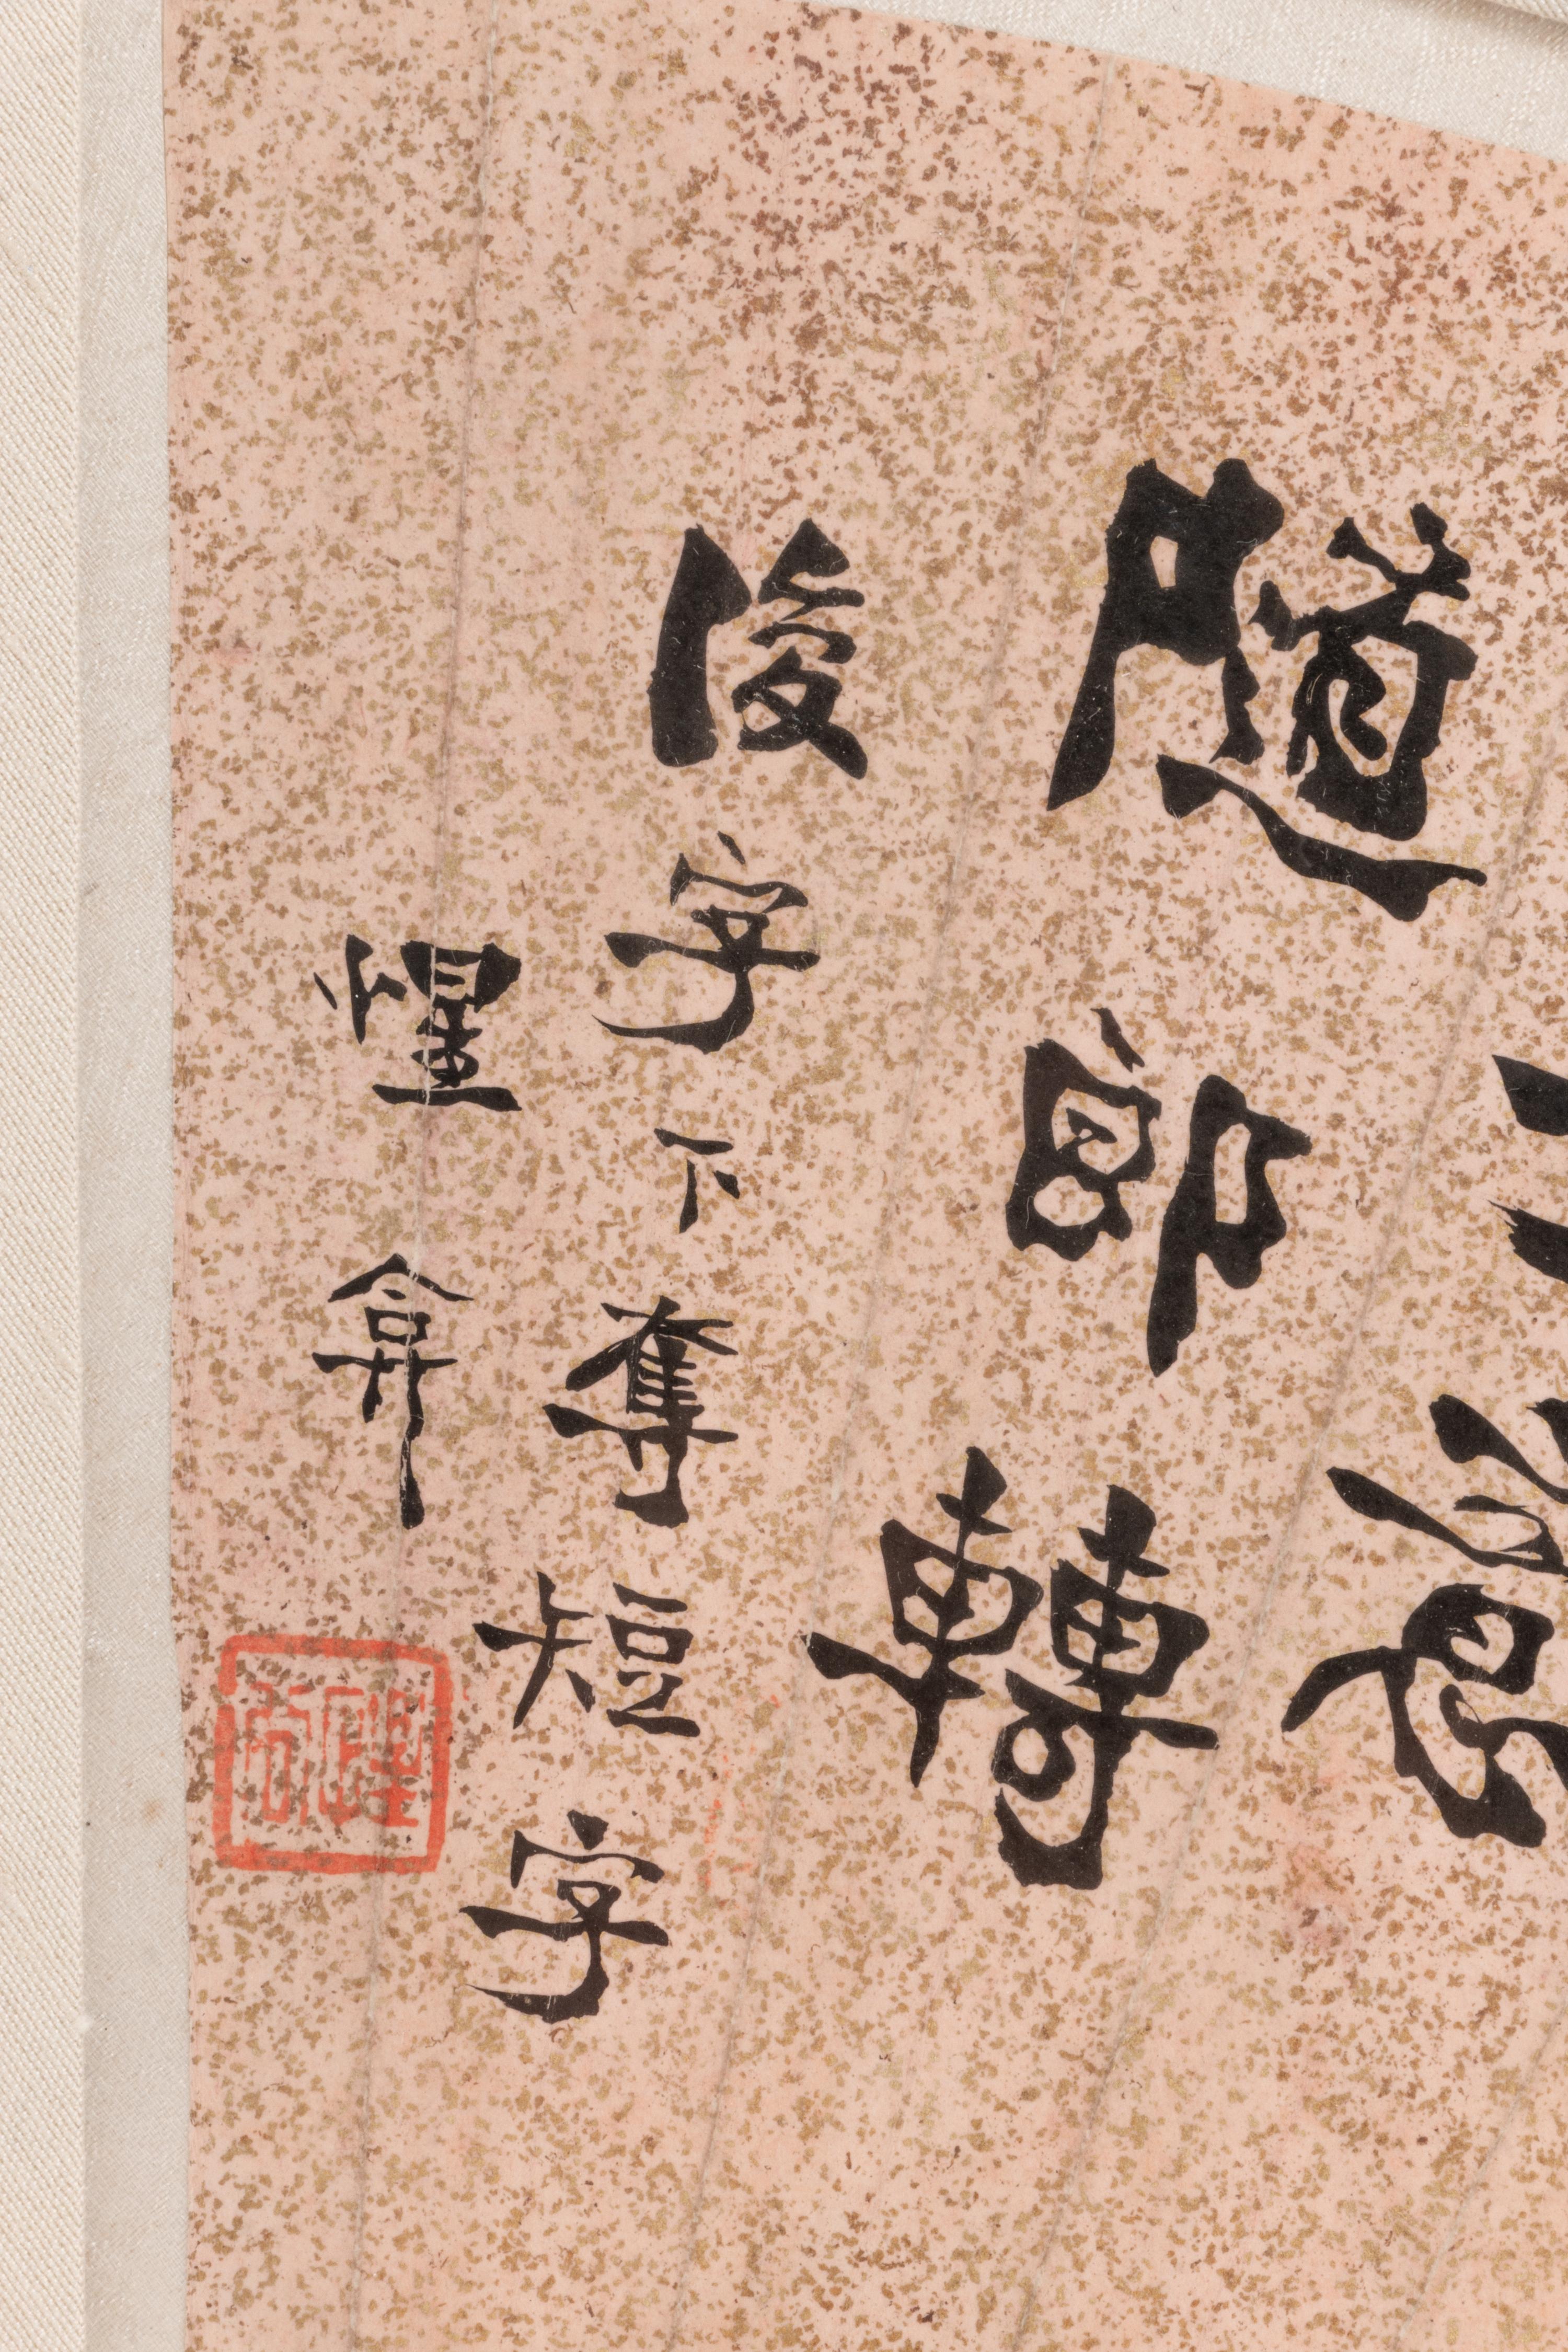 隨郎轉
後字下奪短字
惺弇